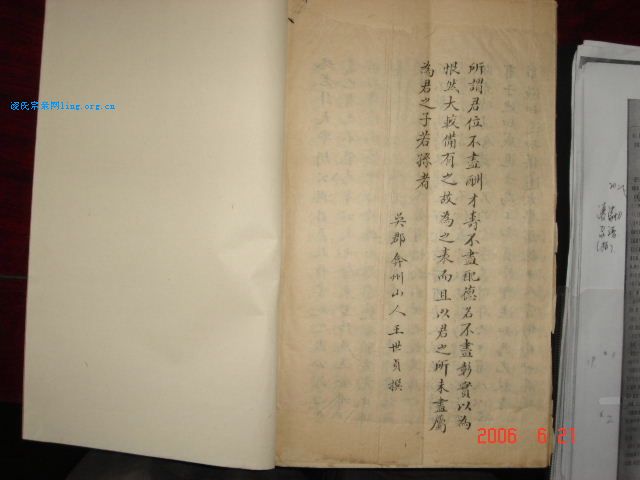 所謂君位不盡酬才壽不盡配德名不盡彰實以為
恨然大較備有之故為之表而且以君之所未盡屬
為君之子若孫者
吳郡弇州山人王世貞撰
凌氏宗亲网ling.org.cn
2006 6 21